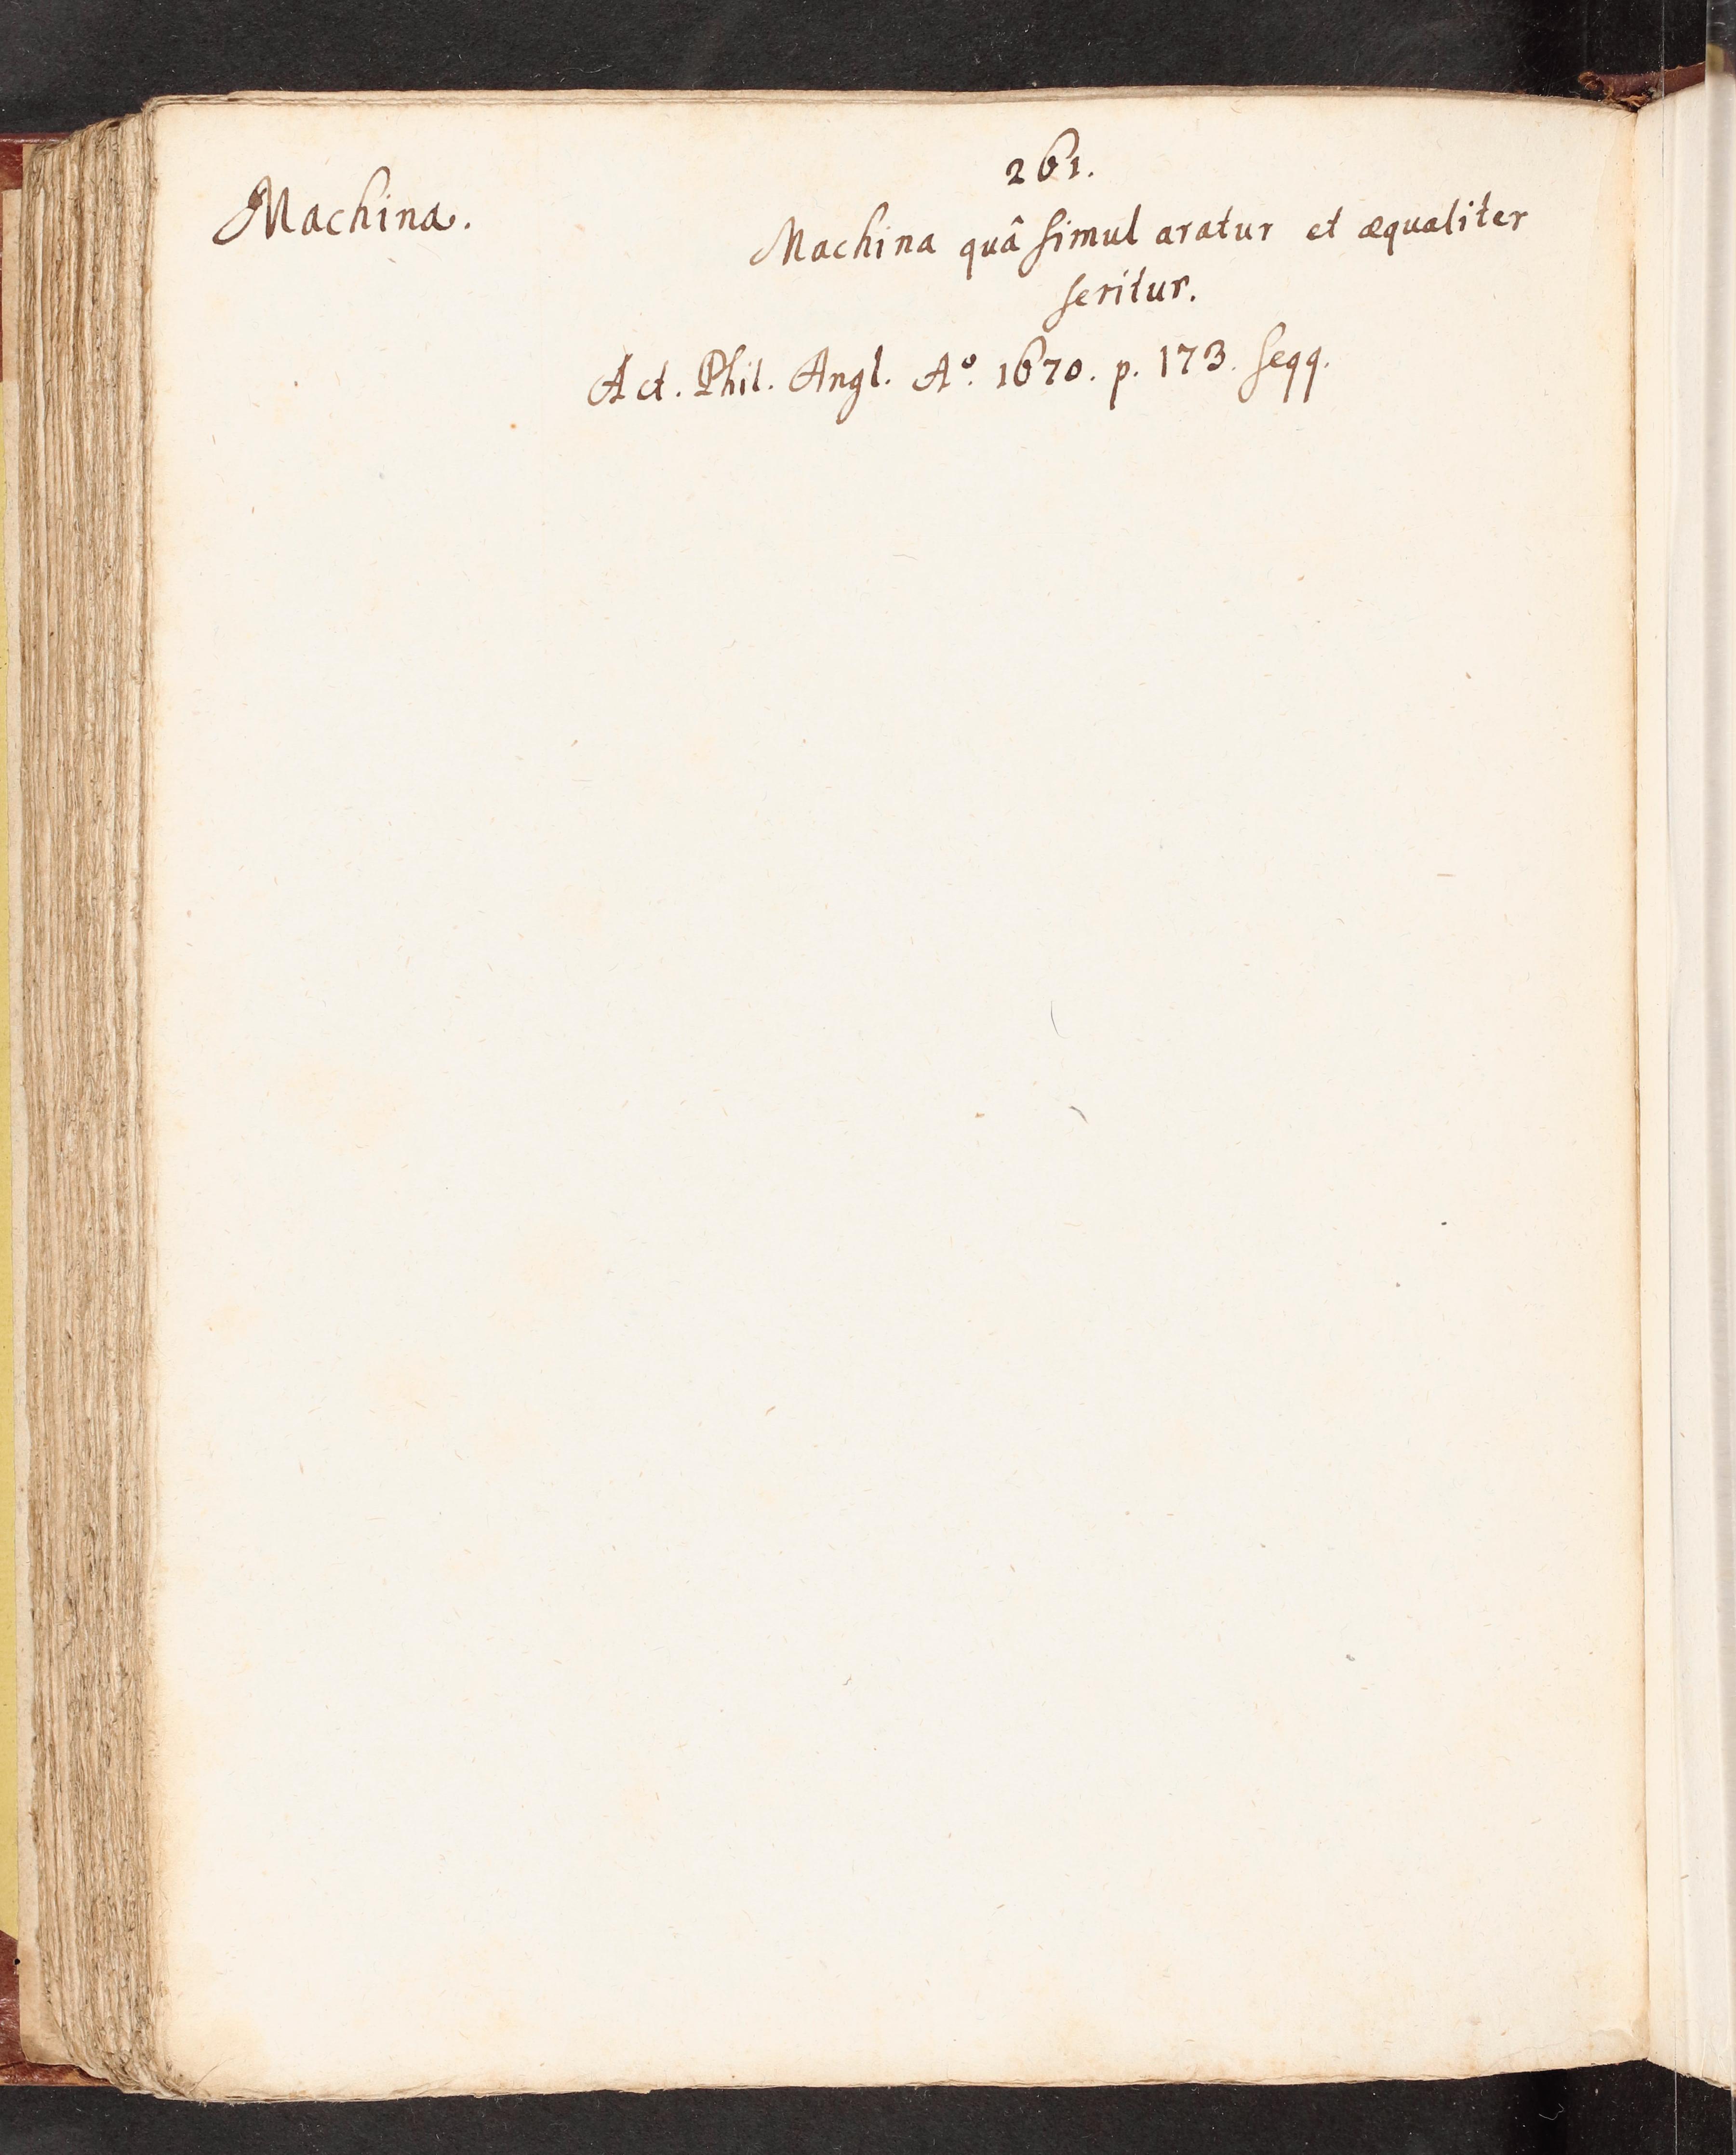 261.
Machina.
Machina quâ simul aratur et æqualiter
seritur.
Act. Phil. Angl. Aº. 1670. p. 173. seqq.